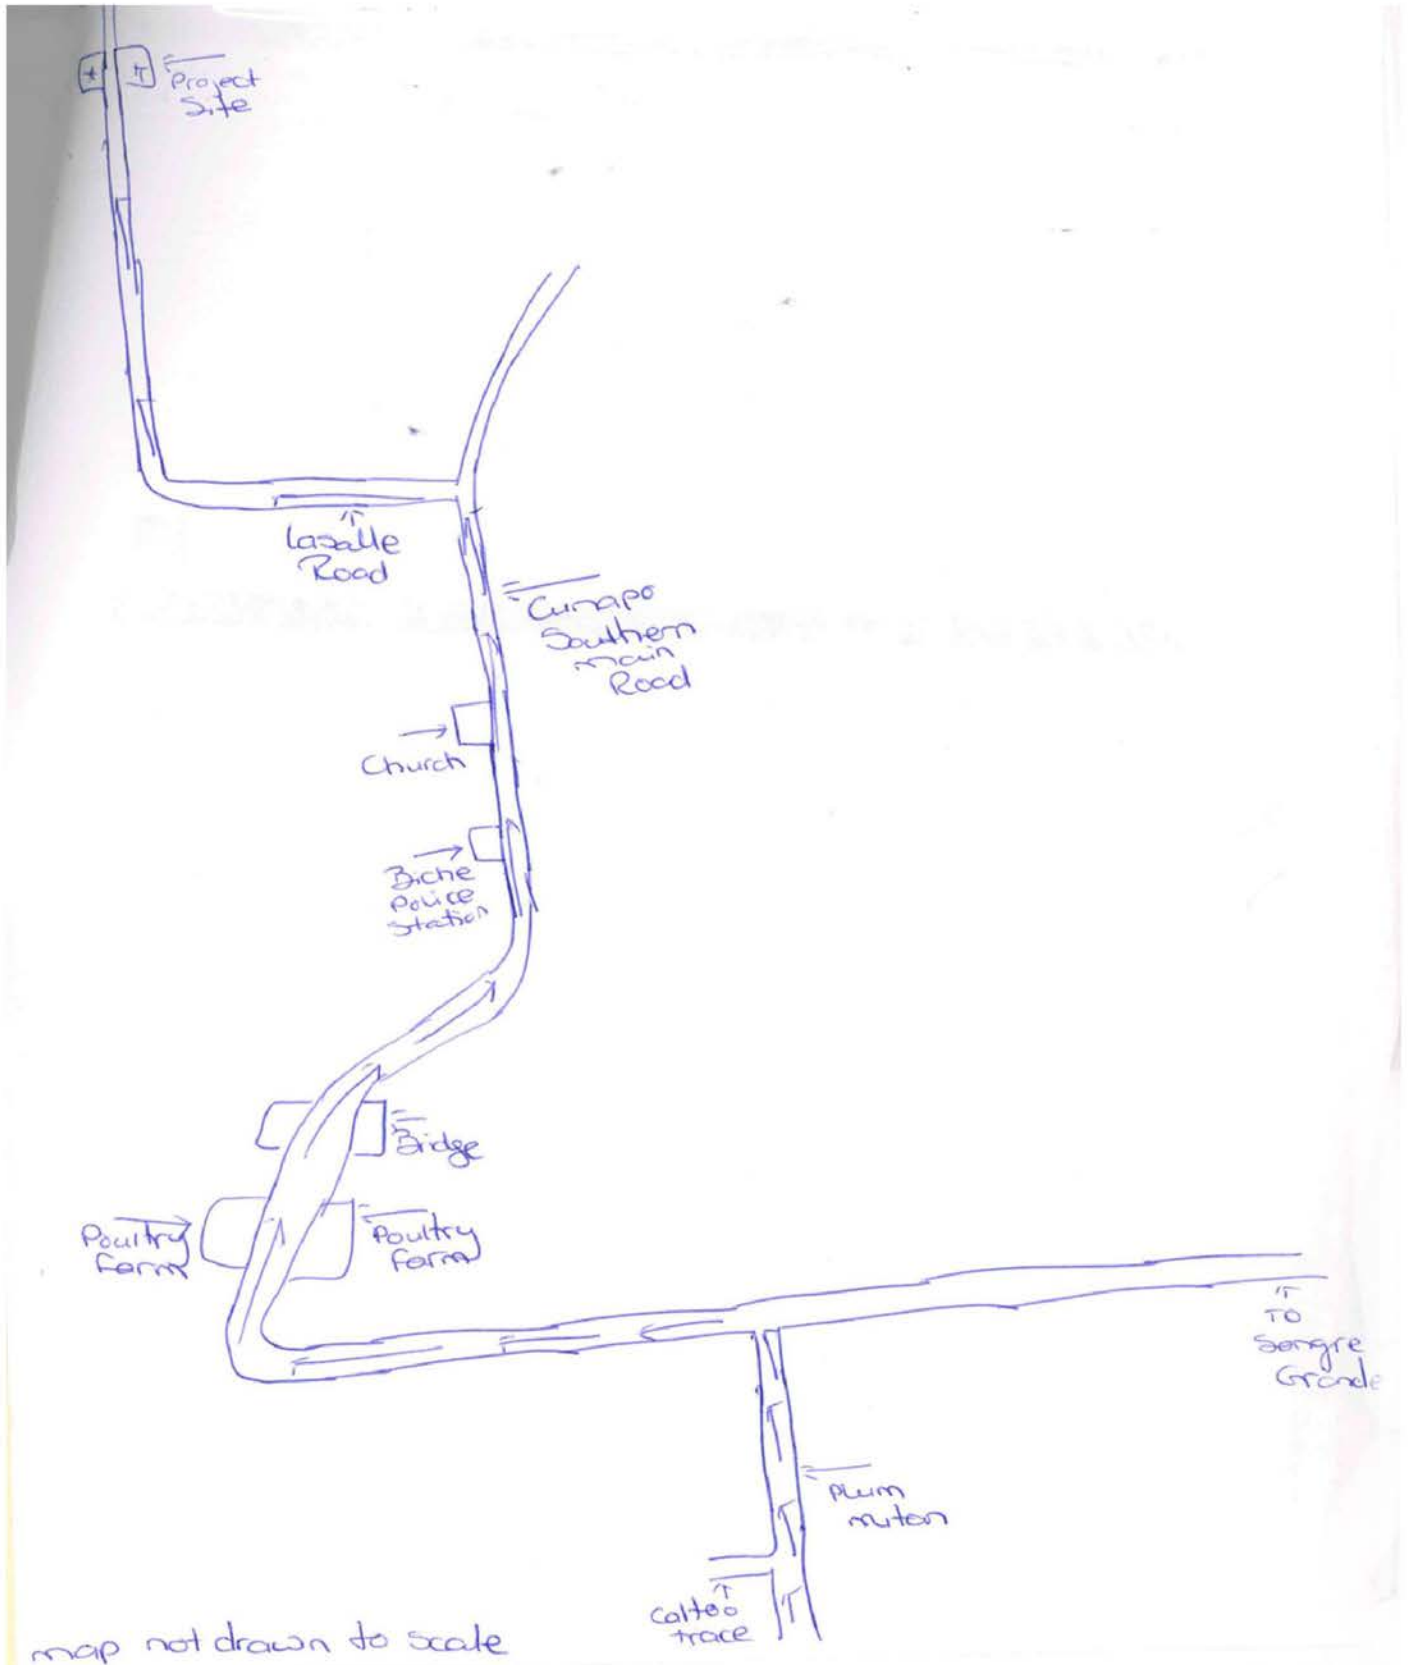 Project
Site
Lasalle
Road
Cunapo
Southern
main
Road
Church
Biche
Police
Station
Bridge
Poultry
Farm
Poultry
Farm
TO
Sangre
Grande
Plum
mitan
trace
map not drawn to scale